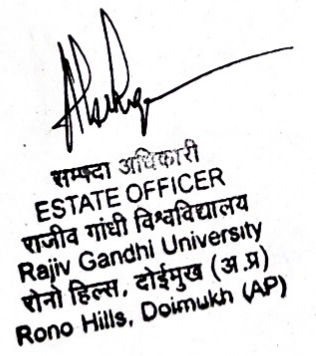 सम्पदा अधिकारी
ESTATE OFFICER
राजीव गांधी विश्वविद्यालय
Rajiv Gandhi University
रोनो हिल्स, दोईमुख (अ.प्र)
Rono Hills, Doimukh (AP)